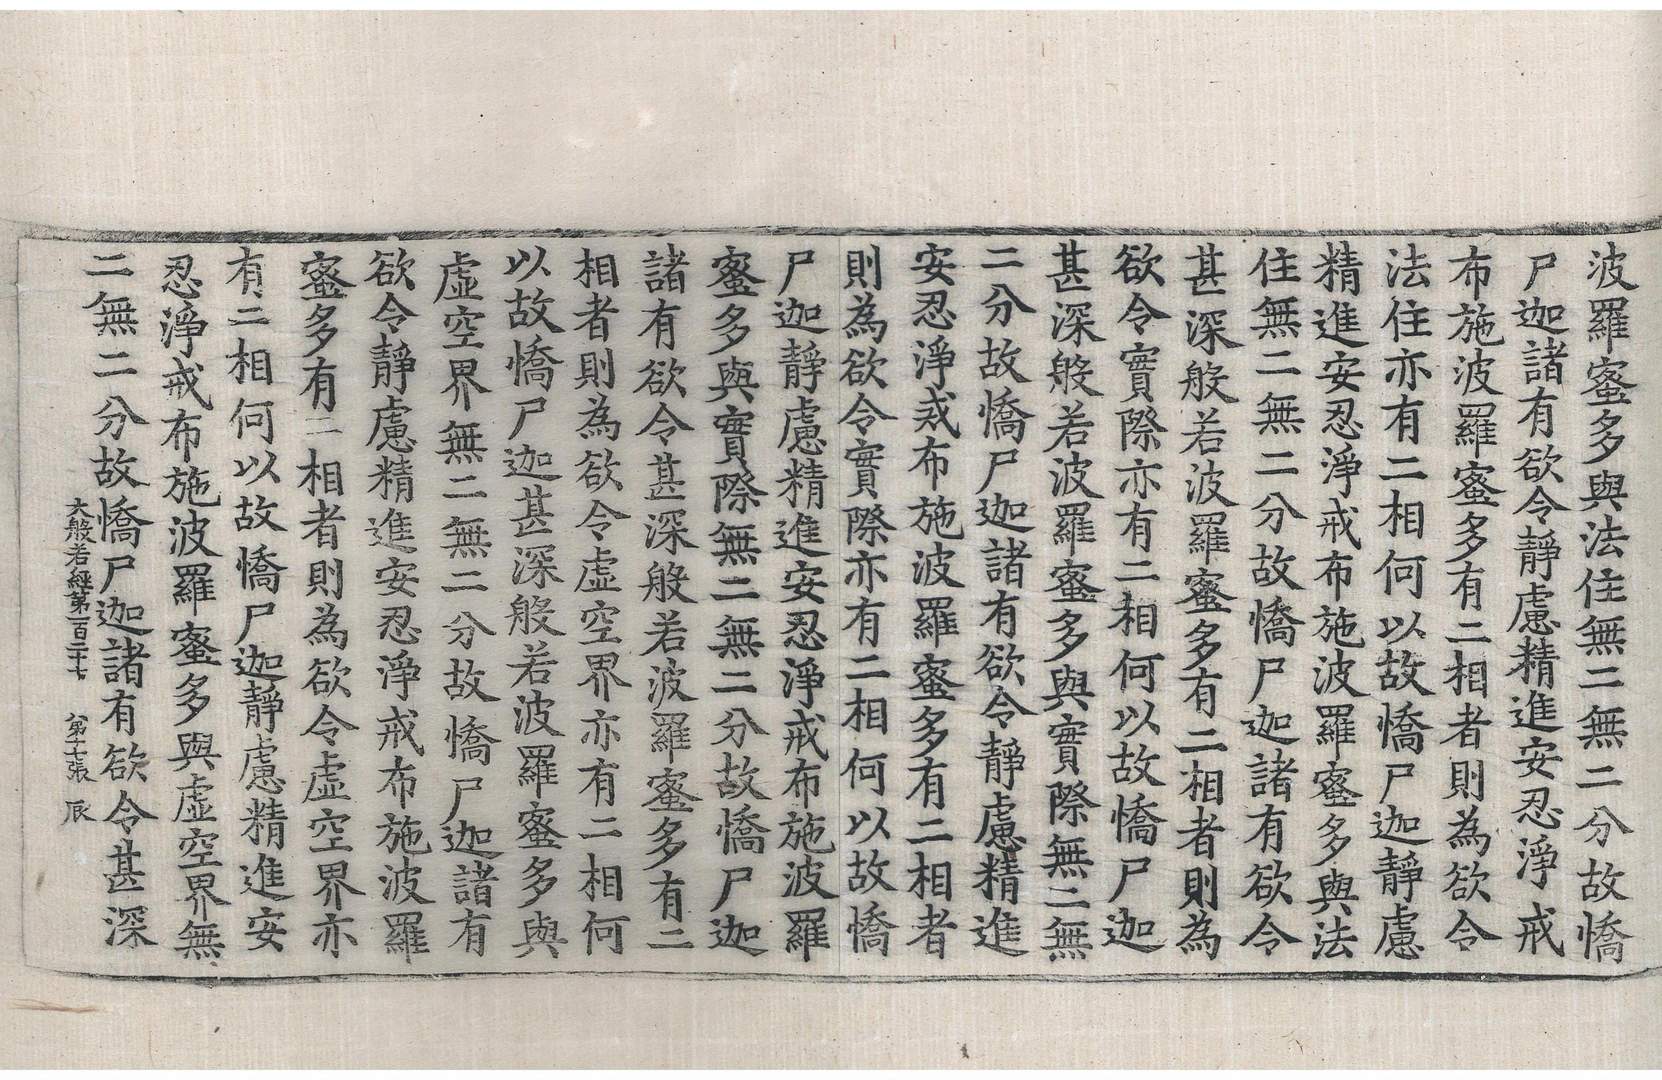 波羅蜜多與法住無二無二分故憍
尸迦諸有欲令靜慮精進安忍淨戒
布施波羅蜜多有二相者則為欲令
法住亦有二相何以故憍尸迦靜慮
精進安忍淨戒布施波羅蜜多與法
住無二無二分故憍尸迦諸有欲令
甚深般若波羅蜜多有二相者則為
欲令實際亦有二相何以故憍尸迦
甚深般若波羅蜜多與實際無二無
二分故憍尸迦諸有欲令靜慮精進
安忍淨戒布施波羅蜜多有二相者
則為欲令實際亦有二相何以故憍
尸迦靜慮精進安忍淨戒布施波羅
蜜多與實際無二無二分故憍尸迦
諸有欲令甚深般若波羅蜜多有二
相者則為欲令虛空界亦有二相何
以故憍尸迦甚深般若波羅蜜多與
虛空界無二無二分故憍尸迦諸有
欲令靜慮精進安忍淨戒布施波羅
蜜多有二相者則為欲令虛空界亦
有二相何以故憍尸迦靜慮精進安
忍淨戒布施波羅蜜多與虛空界無
二無二分故憍尸迦諸有欲令甚深
大般若經第一百二十七 第十張 辰